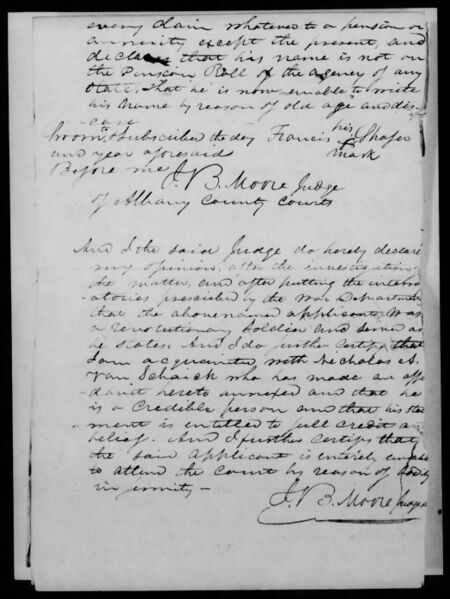 every claim whatever to a pension or
annuity except the present, and
declares that his name is not on
the Pension Roll of the agency of any
State, that he is now unable to write
his name by reason of old age and dis-
ease
Sworn to & subscribed the day Francis his Shafer
and year aforesaid mark
Before me
J. B. Moore Judge
of Albany County Courts
And I the said Judge do hereby declare
my opinion, after the investigation of
the matter, and after putting the interro-
gatories prescribed by the War Department
that the above named applicant was
a Revolutionary Soldier and served as
he states. And I do further certify that
I am acquainted with Nicholas A.
Van Schaick who has made an affi-
davit hereto annexed and that he
is a credible person and that his state
ment is entitled to full credit and
belief. And I further certify that
the said applicant is entirely unable
to attend the court by reason of bodily
infirmity -
J. B. Moore Judge